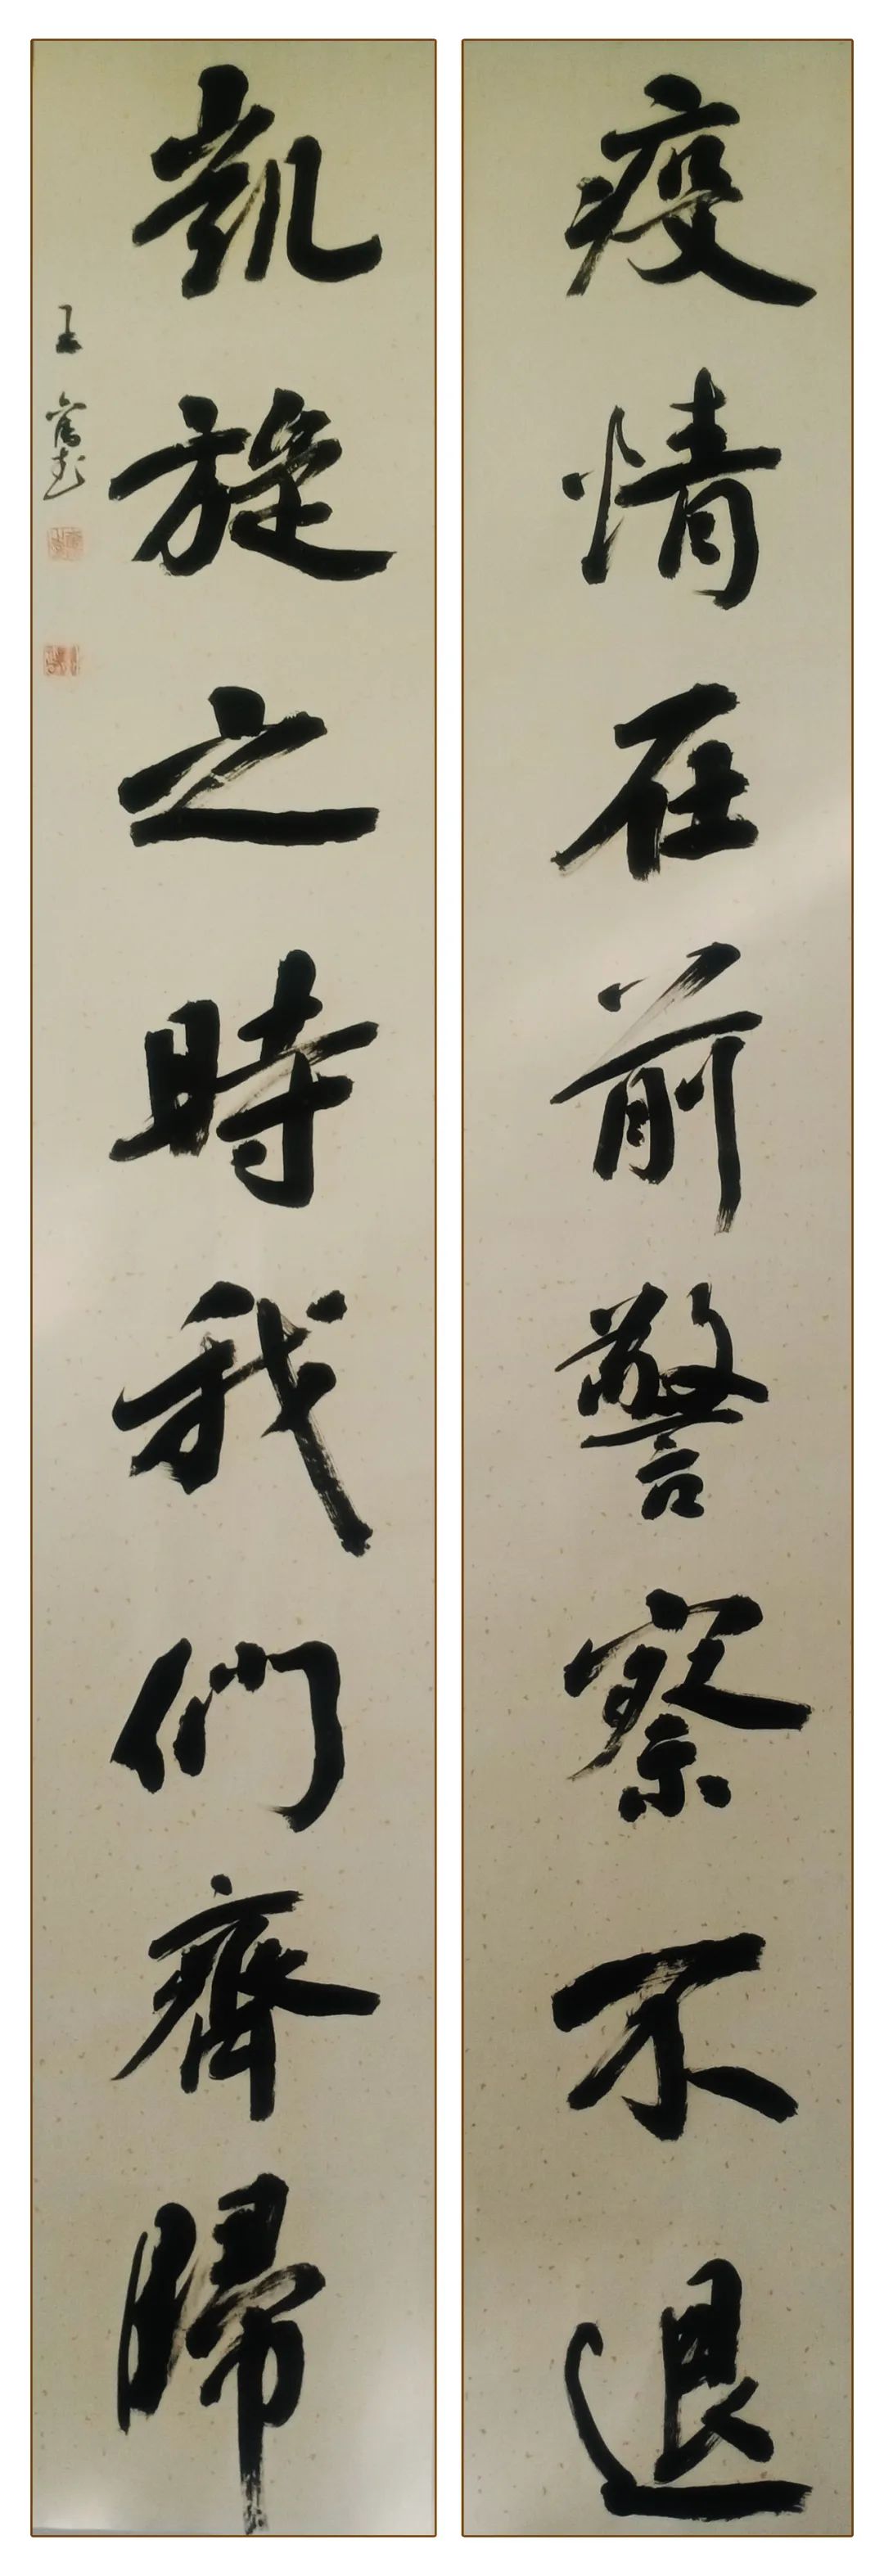 疫情在前警察不退
凱旋之時我們齊歸
王